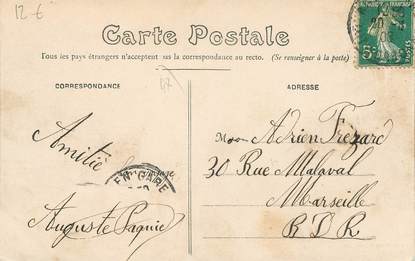 12 €
Carte Postale
Tous les pays étrangers n'acceptent pas la correspondance au recto. (Se renseigner à la poste)
CORRESPONDANCE
ADRESSE
Amitié
Auguste
EN GARE
Adrien Frezard
30 Rue Malaval
Marseille
B D R
5c